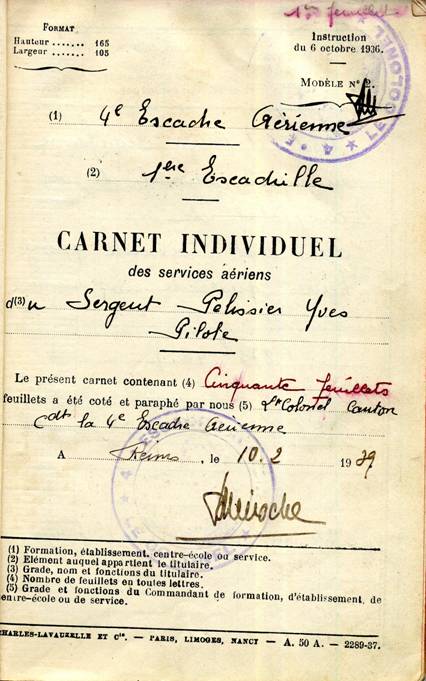 1er feuillet
FORMAT
Hauteur ....... 165
Largeur ....... 105
Instruction
du 6 octobre 1936.
MODÈLE N° 2.
(1) 4e Escadre Aérienne
(2) 1ère Escadrille
CARNET INDIVIDUEL
des services aériens
d(3)u Sergent Pelissier Yves
Pilote
Le présent carnet contenant (4) Cinquante feuillets
feuillets a été coté et paraphé par nous (5) Lt Colonel
Cdt la 4e Escadre Aérienne
A Reims, le 10.2 1939
(1) Formation, établissement, centre-école ou service.
(2) Elément auquel appartient le titulaire.
(3) Grade, nom et fonctions du titulaire.
(4) Nombre de feuillets en toutes lettres.
(5) Grade et fonctions du Commandant de formation, d'établissement, de
centre-école ou de service.
CHARLES-LAVAUZELLE ET Cie. — PARIS, LIMOGES, NANCY — A. 50 A. — 2289-37.